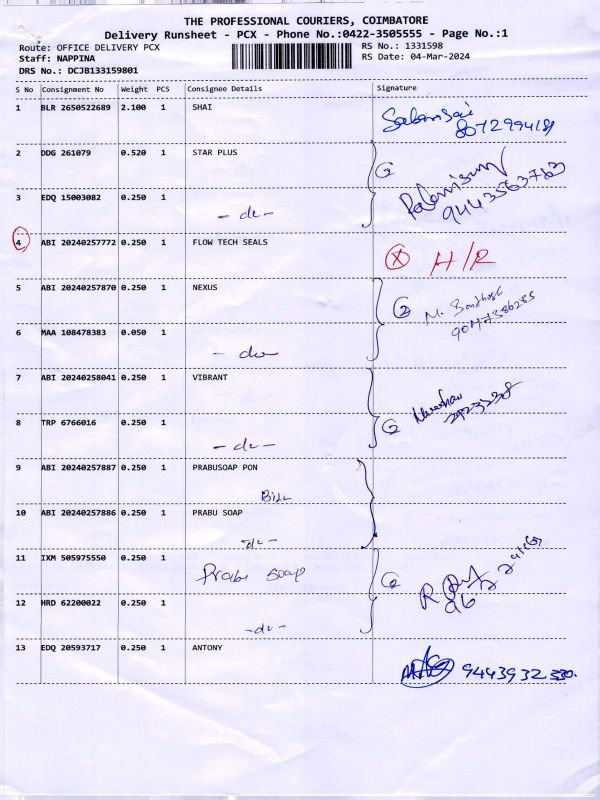 THE PROFESSIONAL COURIERS, COIMBATORE
Delivery Runsheet - PCX - Phone No.:0422-3505555 - Page No.:1
Route: OFFICE DELIVERY PCX RS No.: 1331598
Staff: NAPPINA RS Date: 04-Mar-2024
DRS No.: DCJB133159801
S No Consignment No Weight PCS Consignee Details Signature
1 BLR 2650522689 2.100 1 SHAI
2 DDG 261079 0.520 1 STAR PLUS
3 EDQ 15003082 0.250 1
- do -
4 ABI 20240257772 0.250 1 FLOW TECH SEALS H/R
5 ABI 20240257870 0.250 1 NEXUS
6 MAA 108478383 0.050 1
- do -
7 ABI 20240258041 0.250 1 VIBRANT
8 TRP 6766016 0.250 1
- do -
9 ABI 20240257887 0.250 1 PRABUSOAP PON
10 ABI 20240257886 0.250 1 PRABU SOAP
- do -
11 IXM 505975550 0.250 1 Prabu soap
12 HRD 62200022 0.250 1
- do -
13 EDQ 20593717 0.250 1 ANTONY
9443932330.